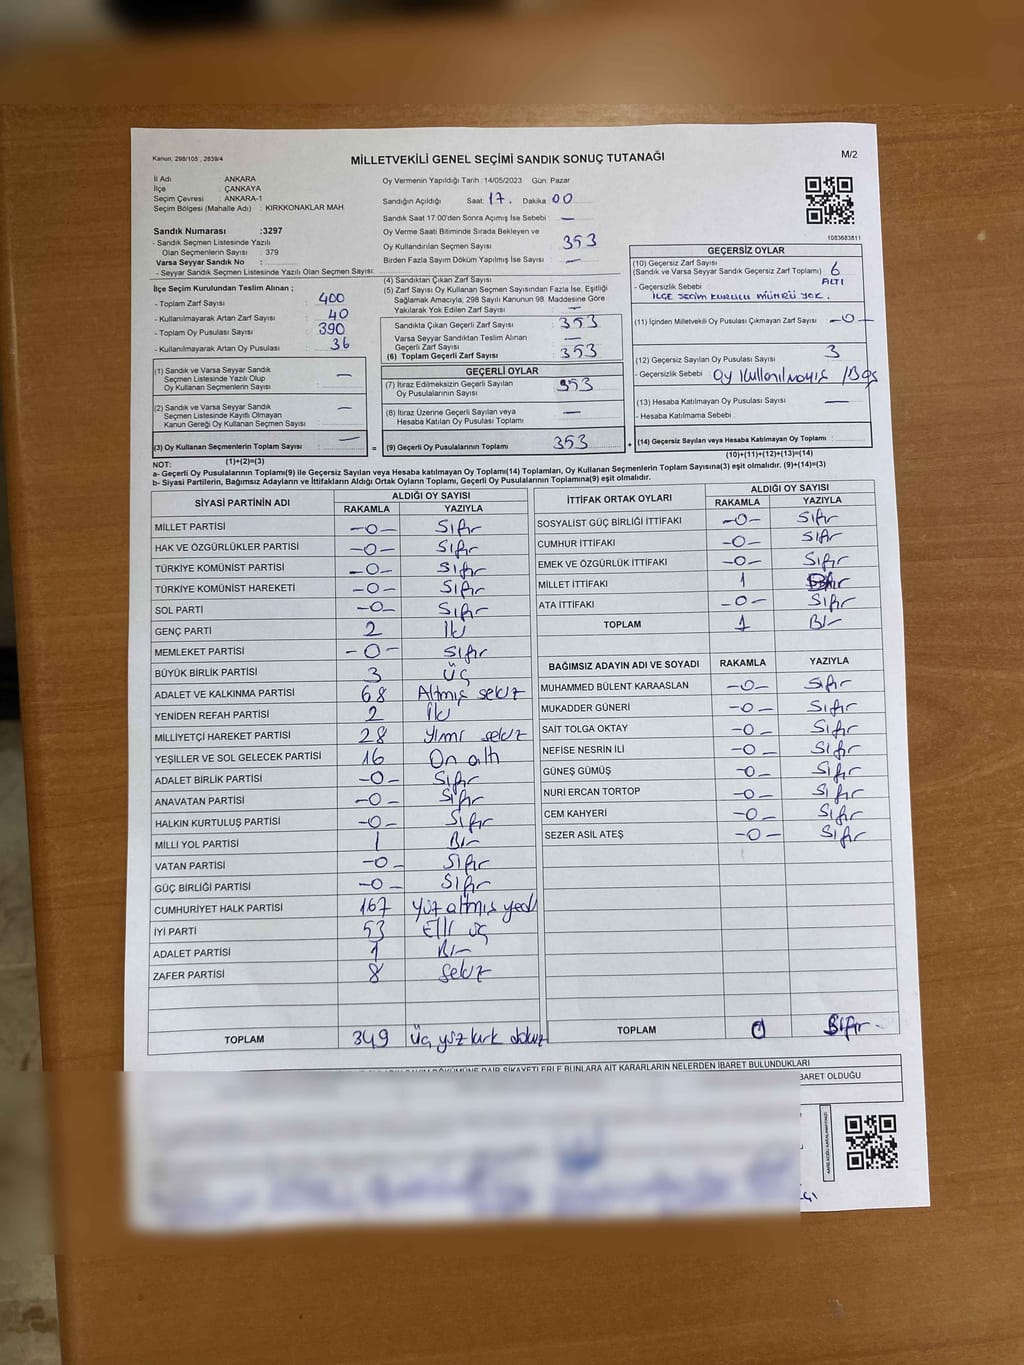 Kanun, 298/105 , 2839/4
MİLLETVEKİLİ GENEL SEÇİMİ SANDIK SONUÇ TUTANAĞI
M/2
İl Adı : ANKARA
İlçe : ÇANKAYA
Seçim Çevresi : ANKARA-1
Seçim Bölgesi (Mahalle Adı) : KIRKKONAKLAR MAH.
Sandık Numarası :3297
- Sandık Seçmen Listesinde Yazılı
Olan Seçmenlerin Sayısı : 379
Varsa Seyyar Sandık No :
- Seyyar Sandık Seçmen Listesinde Yazılı Olan Seçmen Sayısı:
Oy Vermenin Yapıldığı Tarih : 14/05/2023 Gün: Pazar
Sandığın Açıldığı Saat: 17. Dakika 00
Sandık Saat 17:00'den Sonra Açımış İse Sebebi : —
Oy Verme Saati Bitiminde Sırada Bekleyen ve
Oy Kullandırılan Seçmen Sayısı : 353
Birden Fazla Sayım Döküm Yapılmış İse Sayısı : —
1083683811
İlçe Seçim Kurulundan Teslim Alınan ;
- Toplam Zarf Sayısı : 400
- Kullanılmayarak Artan Zarf Sayısı : 40
- Toplam Oy Pusulası Sayısı : 390
- Kullanılmayarak Artan Oy Pusulası : 36
(1) Sandık ve Varsa Seyyar Sandık
Seçmen Listesinde Yazılı Olup
Oy Kullanan Seçmenlerin Sayısı : —
(2) Sandık ve Varsa Seyyar Sandık
Seçmen Listesinde Kayıtlı Olmayan
Kanun Gereği Oy Kullanan Seçmen Sayısı : —
(3) Oy Kullanan Seçmenlerin Toplam Sayısı : —
(1)+(2)=(3)
(4) Sandıktan Çıkan Zarf Sayısı :
(5) Zarf Sayısı Oy Kullanan Seçmen Sayısından Fazla İse, Eşitliği
Sağlamak Amacıyla; 298 Sayılı Kanunun 98. Maddesine Göre
Yakılarak Yok Edilen Zarf Sayısı : —
Sandıkta Çıkan Geçerli Zarf Sayısı : 353
Varsa Seyyar Sandıktan Teslim Alınan
Geçerli Zarf Sayısı : —
(6) Toplam Geçerli Zarf Sayısı : 353
GEÇERLİ OYLAR
(7) İtiraz Edilmeksizin Geçerli Sayılan
Oy Pusulalarının Sayısı : 353
(8) İtiraz Üzerine Geçerli Sayılan veya
Hesaba Katılan Oy Pusulası Toplamı : —
= (9) Geçerli Oy Pusulalarının Toplamı : 353 +
GEÇERSİZ OYLAR
(10) Geçersiz Zarf Sayısı
(Sandık ve Varsa Seyyar Sandık Geçersiz Zarf Toplamı) : 6
ALTI
- Geçersizlik Sebebi :
İLÇE SEÇİM KURULU MÜHRÜ YOK.
(11) İçinden Milletvekili Oy Pusulası Çıkmayan Zarf Sayısı : —0—
(12) Geçersiz Sayılan Oy Pusulası Sayısı : 3
- Geçersizlik Sebebi : Oy Kullanılmamış /Boş
(13) Hesaba Katılmayan Oy Pusulası Sayısı : —
- Hesaba Katılmama Sebebi :
(14) Geçersiz Sayılan veya Hesaba Katılmayan Oy Toplamı :
(10)+(11)+(12)+(13)=(14)
NOT:
a- Geçerli Oy Pusulalarının Toplamı(9) ile Geçersiz Sayılan veya Hesaba katılmayan Oy Toplamı(14) Toplamları, Oy Kullanan Seçmenlerin Toplam Sayısına(3) eşit olmalıdır. (9)+(14)=(3)
b- Siyasi Partilerin, Bağımsız Adayların ve İttifakların Aldığı Ortak Oyların Toplamı, Geçerli Oy Pusulalarının Toplamına(9) eşit olmalıdır.
SİYASİ PARTİNİN ADI ALDIĞI OY SAYISI
RAKAMLA YAZIYLA
MİLLET PARTİSİ —0— Sıfır
HAK VE ÖZGÜRLÜKLER PARTİSİ —0— Sıfır
TÜRKİYE KOMÜNİST PARTİSİ —0— Sıfır
TÜRKİYE KOMÜNİST HAREKETİ —0— Sıfır
SOL PARTİ —0— Sıfır
GENÇ PARTİ 2 İki
MEMLEKET PARTİSİ —0— Sıfır
BÜYÜK BİRLİK PARTİSİ 3 üç
ADALET VE KALKINMA PARTİSİ 68 Altmış sekiz
YENİDEN REFAH PARTİSİ 2 İki
MİLLİYETÇİ HAREKET PARTİSİ 28 Yirmi sekiz
YEŞİLLER VE SOL GELECEK PARTİSİ 16 On altı
ADALET BİRLİK PARTİSİ —0— Sıfır
ANAVATAN PARTİSİ —0— Sıfır
HALKIN KURTULUŞ PARTİSİ —0— Sıfır
MİLLİ YOL PARTİSİ 1 Bir
VATAN PARTİSİ —0— Sıfır
GÜÇ BİRLİĞİ PARTİSİ —0— Sıfır
CUMHURİYET HALK PARTİSİ 167 Yüz altmış yedi
İYİ PARTİ 53 Elli üç
ADALET PARTİSİ 1 Bir
ZAFER PARTİSİ 8 Sekiz
TOPLAM 349 üç yüz kırk dokuz
İTTİFAK ORTAK OYLARI ALDIĞI OY SAYISI
RAKAMLA YAZIYLA
SOSYALİST GÜÇ BİRLİĞİ İTTİFAKI —0— Sıfır
CUMHUR İTTİFAKI —0— Sıfır
EMEK VE ÖZGÜRLÜK İTTİFAKI —0— Sıfır
MİLLET İTTİFAKI 1
ATA İTTİFAKI —0— Sıfır
TOPLAM 1 Bir
BAĞIMSIZ ADAYIN ADI VE SOYADI RAKAMLA YAZIYLA
MUHAMMED BÜLENT KARAASLAN —0— Sıfır
MUKADDER GÜNERİ —0— Sıfır
SAİT TOLGA OKTAY —0— Sıfır
NEFİSE NESRİN İLİ —0— Sıfır
GÜNEŞ GÜMÜŞ —0— Sıfır
NURİ ERCAN TORTOP —0— Sıfır
CEM KAHYERİ —0— Sıfır
SEZER ASİL ATEŞ —0— Sıfır
TOPLAM 0 Sıfır
DÖKÜMÜNE DAİR ŞİKAYETLERLE BUNLARA AİT KARARLARIN NELERDEN İBARET BULUNDUKLARI
BARET OLDUĞU